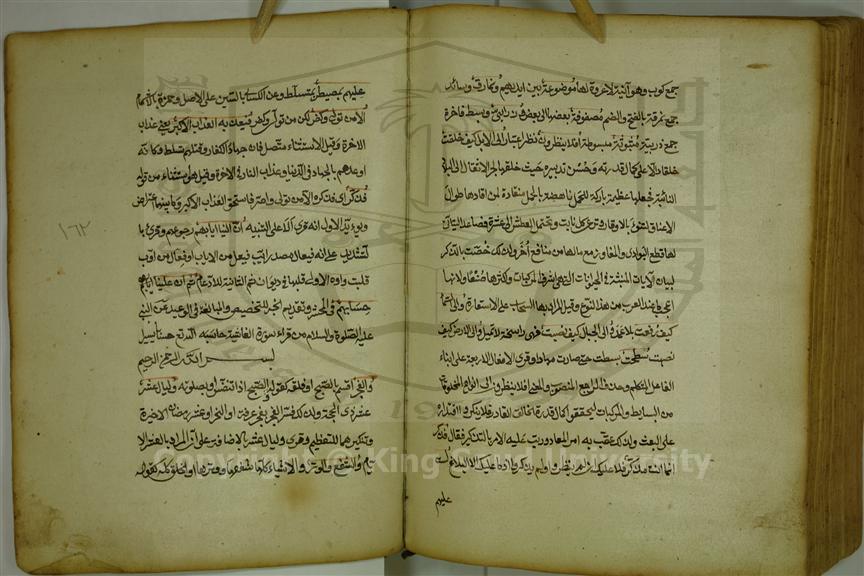 جمع كوب وهو آنية لا عروة لها موضوعة بين ايديهم ونمارق وسائد
جمع نمرقة بالفتح والضم مصفوفة بعضها الى بعض وزرابي وبسط فاخرة
جمع زربية مبثوثة مبسوطة أفلا ينظرون نظر اعتبار الى الابل كيف خلقت
خلقا دالا على كمال قدرته وحسن تدبيره حيث خلقها لجر الاثقال الى البلاد
النائية فجعلها عظيمة باركة للحمل ناهضة بالحمل منقادة لمن اقتادها طوال
الاعناق لتنوء بالاوقار ترعى كل نابت وتحتمل العطش الى عشرة فصاعدا ليتأتى
لها قطع البوادي والمفاوز مع ما لها من منافع أخر ولذلك خصت بالذكر
لبيان الآيات المنبثة في الحيوانات التي هي اشرف المركبات واكثرها صنعا ولانها
اعجب ما عند العرب من هذا النوع وقيل المراد بها السحاب على الاستعارة والى السماء
كيف رفعت بلا عمد والى الجبال كيف نصبت فهي راسخة لا تميل والى الارض كيف
سطحت بسطت حتى صارت مهادا وقرئ الافعال الاربعة على بناء
الفاعل المتكلم وحذف الراجع المنصوب والمعنى افلا ينظرون الى انواع المخلوقات
من البسائط والمركبات ليتحققوا كمال قدرة الخالق القادر فلا ينكروا اقتداره
على البعث ولذلك عقب به امر المعاد ورتب عليه الامر بالتذكير فقال فذكر
انما انت مذكر فلا عليك ان لم ينظروا ولم يذكروا اذ ما عليك الا البلاغ لست
عليهم
عليهم بمصيطر بمتسلط وعن الكسائي بالسين على الاصل وحمزة بالاشمام
الا من تولى وكفر لكن من تولى وكفر فيعذبه الله العذاب الاكبر يعني عذاب
الاخرة وقيل الاستثناء متصل فان جهاد الكفار وقتلهم تسلط وكانه
اوعدهم بالجهاد في الدنيا وعذاب النار في الاخرة وقيل هو استثناء من قوله
فذكر أي فذكر الا من تولى واصر فاستحق العذاب الاكبر وما بينهما اعتراض
ويؤيد الاول انه قرئ ألا على التنبيه ان الينا ايابهم رجوعهم وقرئ با
لتشديد على انه فيعال مصدر ايب فيعل من الاياب او فعال من اوب
قلبت واوه الاولى قلبها في ديوان ثم الثانية للادغام ثم ان علينا
حسابهم في المحشر وتقديم الخبر للتخصيص والمبالغة في الوعيد عن النبي
عليه الصلوة والسلام من قراء سورة الغاشية حاسبه الله تع حسابا يسيرا
بسم الله الرحمن الرحيم
والفجر اقسم بالصبح او فلقه كقوله والصبح اذا تنفس او بصلوته وليال عشر
عشر ذي الحجة ولذلك فسر الفجر بفجر عرفة او النحر او عشر رمضان الاخيرة
وتنكيرها للتعظيم وقرئ وليال عشر بالاضافة على أن المراد بالعشر الا
يام والشفع والوتر والاشياء كلها شفعها ووترها او الخلق كقوله
١٦٢
Copyright © King Saud University